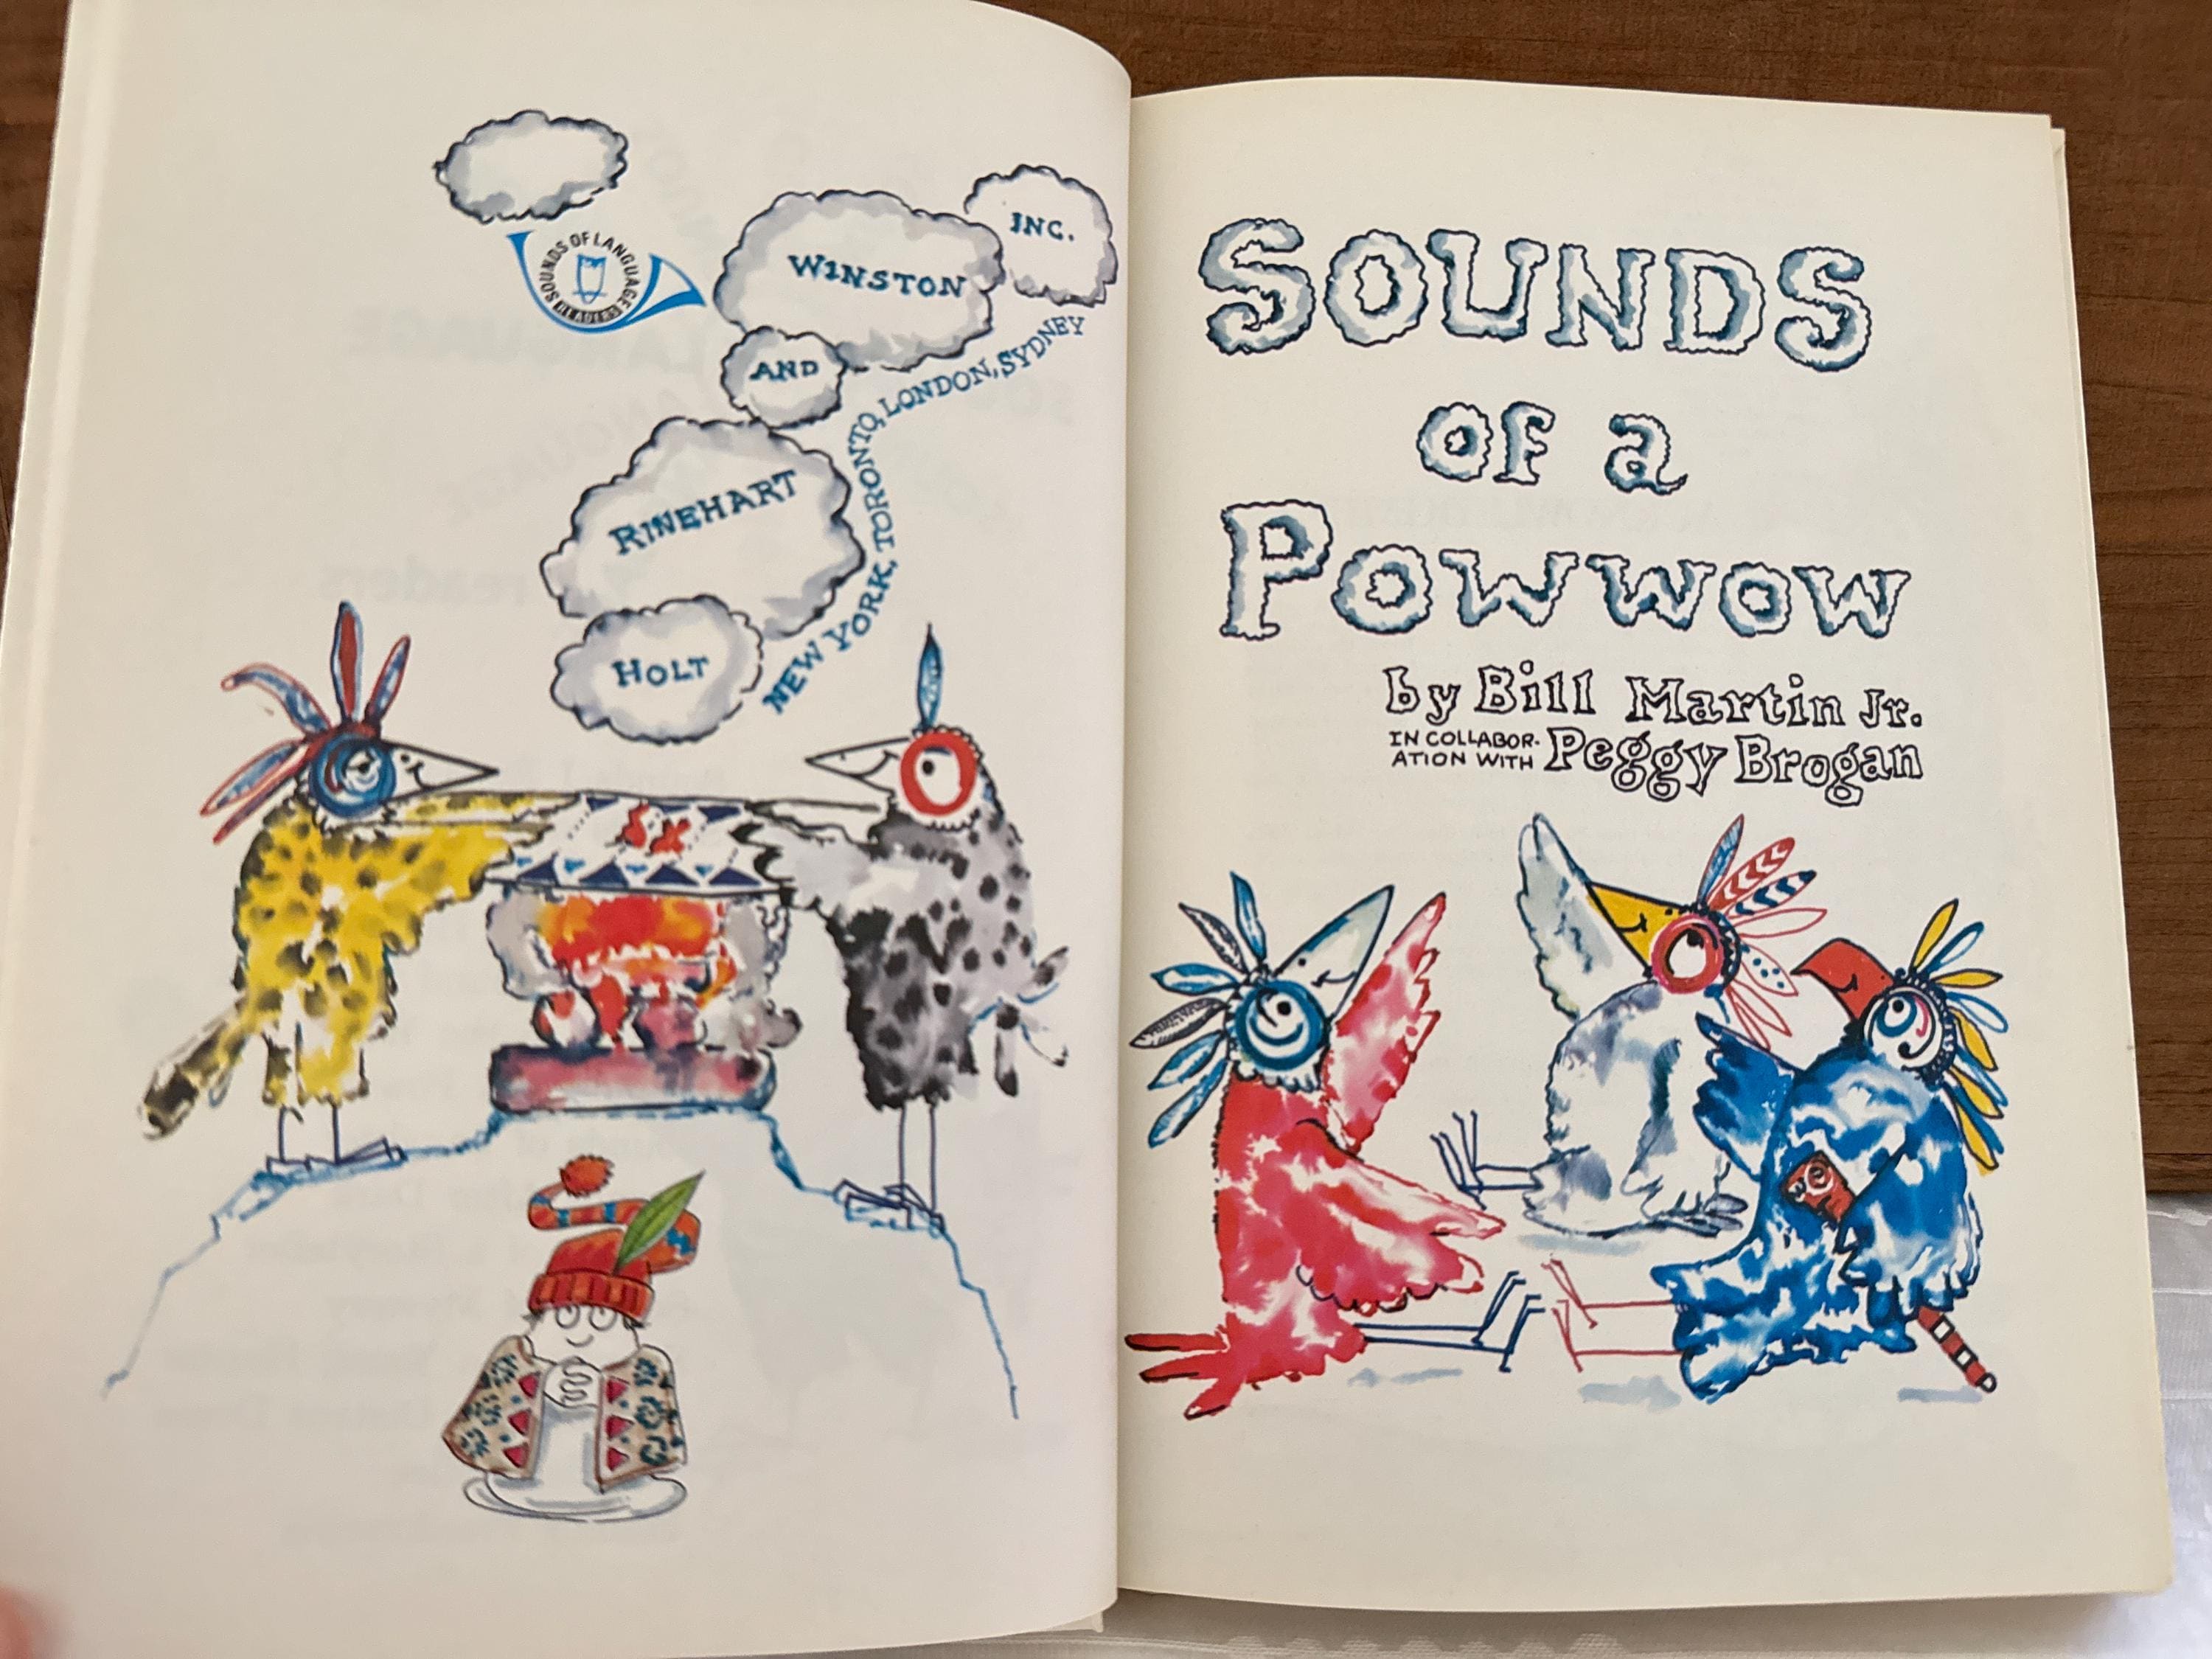 SOUNDS OF LANGUAGE
READERS
INC.
WINSTON
AND
RINEHART
HOLT
NEW YORK, TORONTO, LONDON, SYDNEY
SOUNDS
OF a
POWWOW
by Bill Martin Jr.
IN COLLABOR-
ATION WITH Peggy Brogan